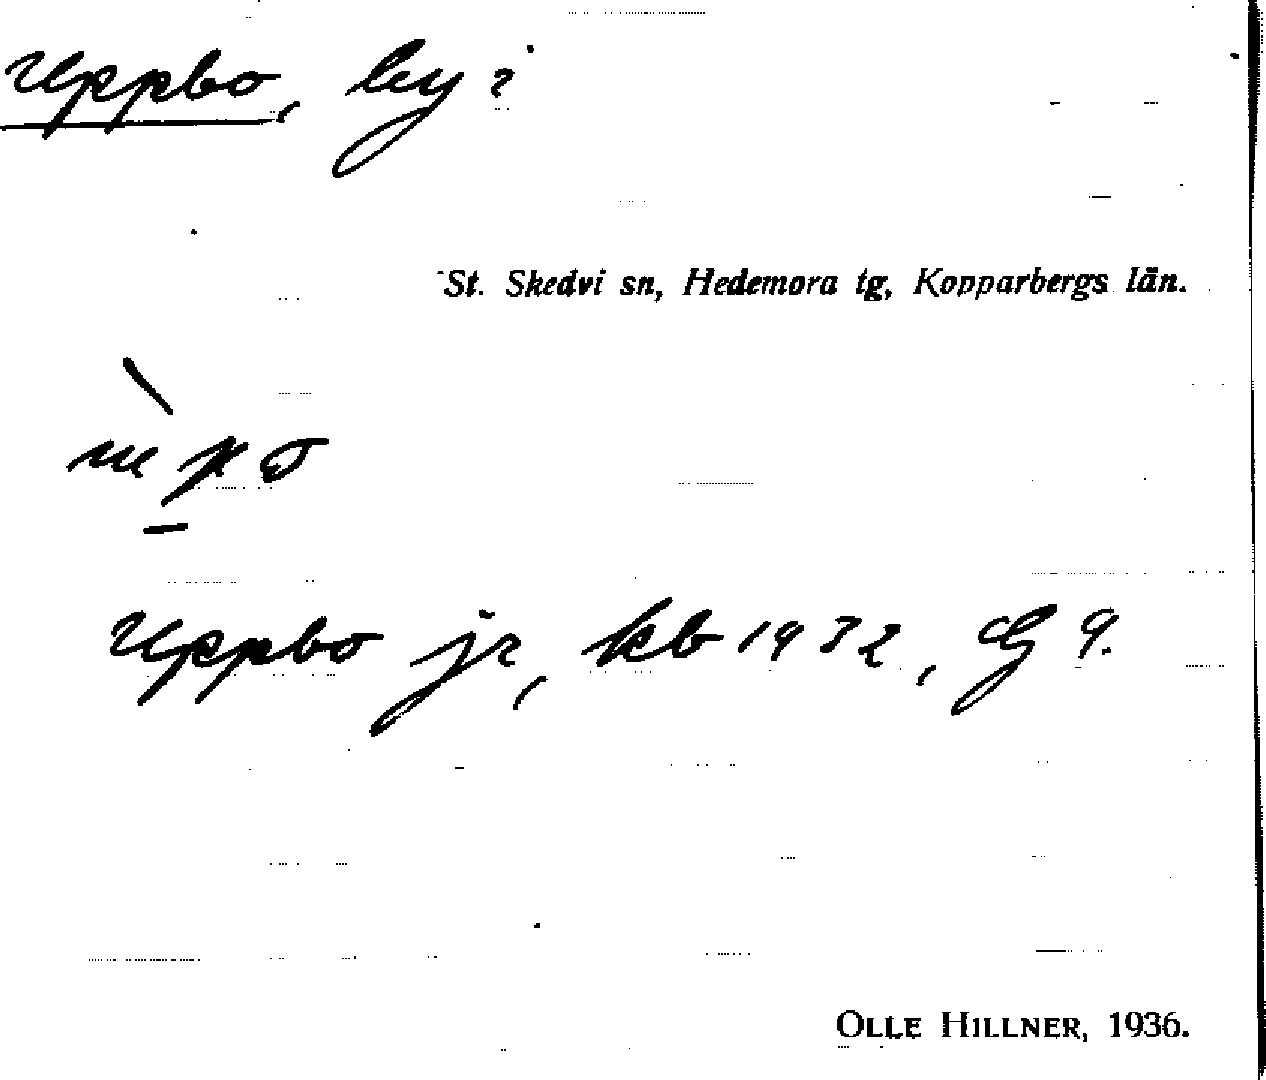 Uppbo, by i
St. Skedvi sn, Hedemora tg, Kopparbergs län.
Uppbo jr, kb 1932, Cg 9.
OLLE HILLNER, 1936.